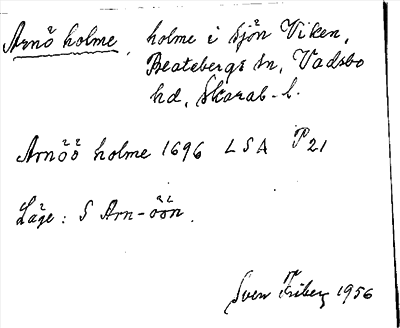 Arnö holme, holme i sjön Viken,
Beatebergs sn, Vadsbo
hd, Skarab. l.
Arnöö holme 1696 LSA P21
Läge: S Arn-öön.
Sven Friberg 1956